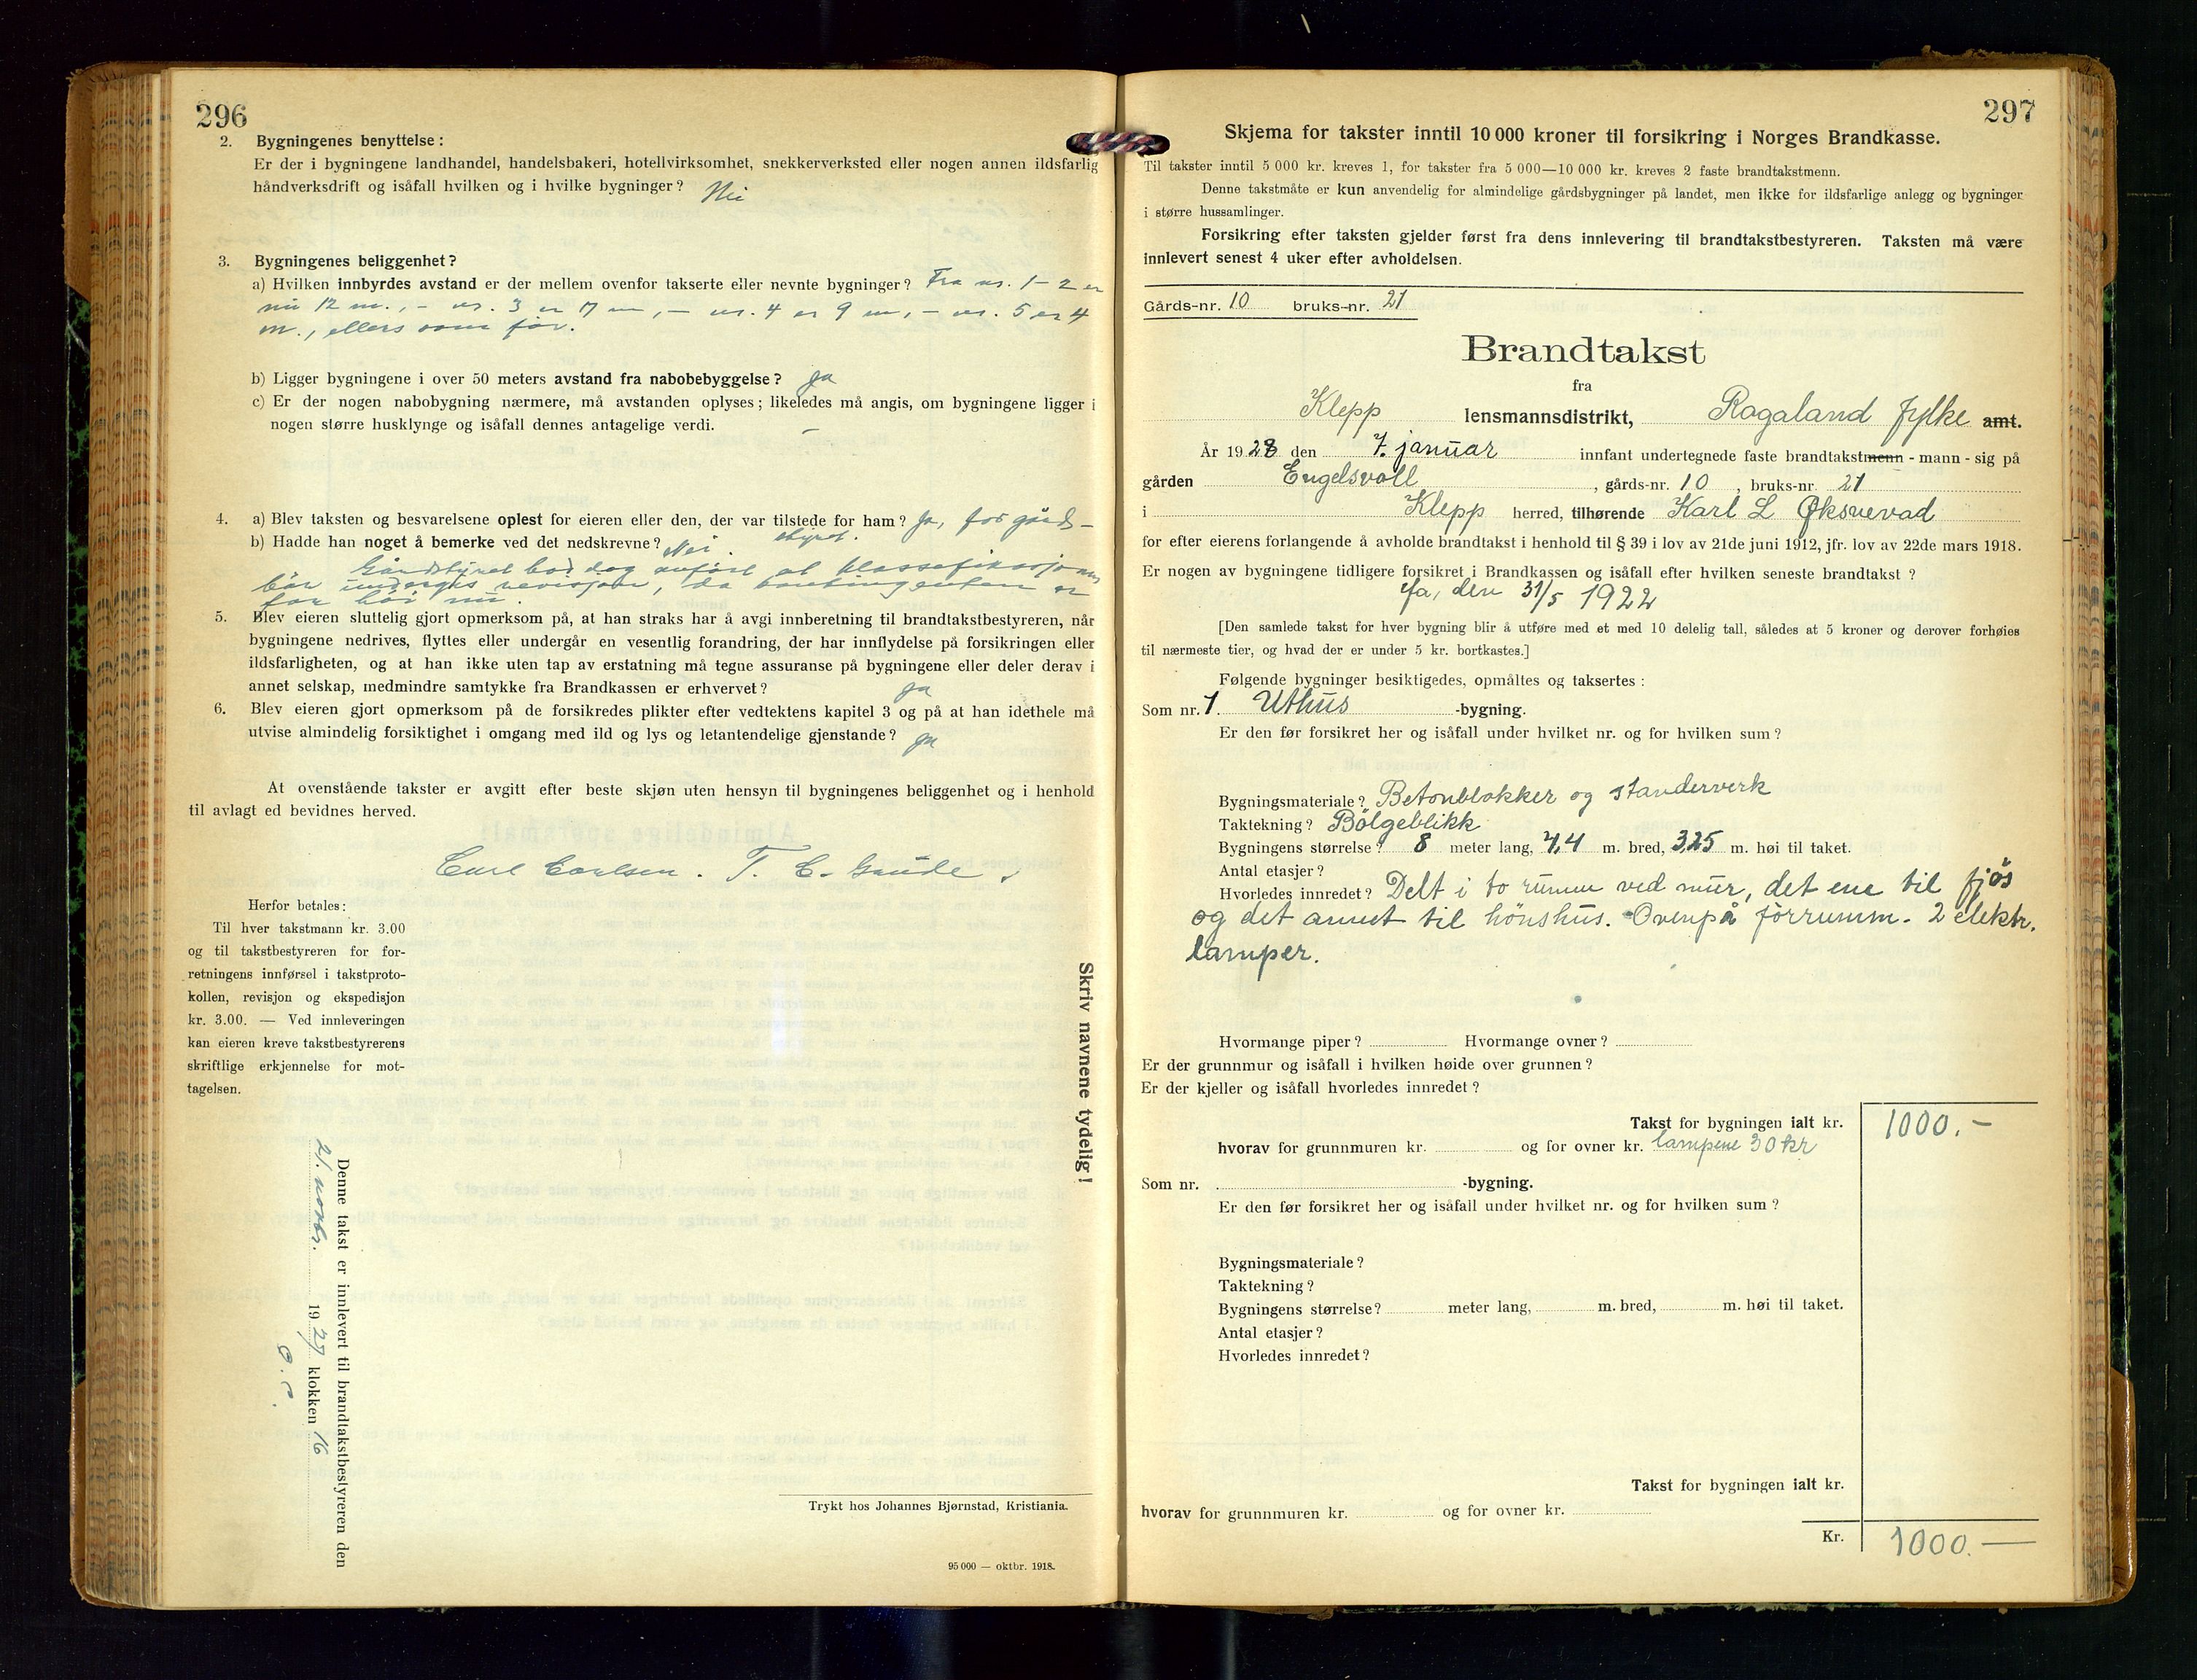 296
2. Bygningenes benyttelse:
Er der i bygningene landhandel, handelsbakeri, hotellvirksomhet, snekkerverksted eller nogen annen ildsfarlig
håndverksdrift og isåfall hvilken og i hvilke bygninger? Nei
3. Bygningenes beliggenhet?
a) Hvilken innbyrdes avstand er der mellem ovenfor takserte eller nevnte bygninger? Fra nr. 1-2 er
nu 12 m., - nr. 3 er 17 m, - nr. 4 er 9 m, - nr. 5 er 4
m., ellers som før.
b) Ligger bygningene i over 50 meters avstand fra nabobebyggelse? Ja
c) Er der nogen nabobygning nærmere, må avstanden oplyses; likeledes må angis, om bygningene ligger i
nogen større husklynge og isåfall dennes antagelige verdi. —
4. a) Blev taksten og besvarelsene oplest for eieren eller den, der var tilstede for ham? Ja, for gårds-
styret.
b) Hadde han noget å bemerke ved det nedskrevne? Nei.
Gårdstyret bad dog anført at klassefikasjonen
bør undergis revisjon, da kontingenten er
for høi nu.
5. Blev eieren sluttelig gjort opmerksom på, at han straks har å avgi innberetning til brandtakstbestyreren, når
bygningene nedrives, flyttes eller undergår en vesentlig forandring, der har innflydelse på forsikringen eller
ildsfarligheten, og at han ikke uten tap av erstatning må tegne assuranse på bygningene eller deler derav i
annet selskap, medmindre samtykke fra Brandkassen er erhvervet? Ja
6. Blev eieren gjort opmerksom på de forsikredes plikter efter vedtektens kapitel 3 og på at han idethele må
utvise almindelig forsiktighet i omgang med ild og lys og letantendelige gjenstande? Ja
At ovenstående takster er avgitt efter beste skjøn uten hensyn til bygningenes beliggenhet og i henhold
til avlagt ed bevidnes herved.
Carl Carlsen. T. C. Gaude.
Herfor betales:
Til hver takstmann kr. 3.00
og til takstbestyreren for for-
retningens innførsel i takstproto-
kollen, revisjon og ekspedisjon
kr. 3.00. — Ved innleveringen
kan eieren kreve takstbestyrerens
skriftlige erkjennelse for mot-
tagelsen.
Skriv navnene tydelig!
Denne takst er innlevert til brandtakstbestyreren den
21. novbr. 1927 klokken 16
Trykt hos Johannes Bjørnstad, Kristiania.
95 000 — oktbr. 1918.
297
Skjema for takster inntil 10 000 kroner til forsikring i Norges Brandkasse.
Til takster inntil 5 000 kr. kreves 1, for takster fra 5 000—10 000 kr. kreves 2 faste brandtakstmenn.
Denne takstmåte er kun anvendelig for almindelige gårdsbygninger på landet, men ikke for ildsfarlige anlegg og bygninger
i større hussamlinger.
Forsikring efter taksten gjelder først fra dens innlevering til brandtakstbestyreren. Taksten må være
innlevert senest 4 uker efter avholdelsen.
Gårds-nr. 10 bruks-nr. 21
Brandtakst
fra
Klepp lensmannsdistrikt, Rogaland fylke amt.
År 1928 den 7. januar innfant undertegnede faste brandtakstmenn - mann - sig på
gården Engelsvoll, gårds-nr. 10, bruks-nr. 21
i Klepp herred, tilhørende Karl L Øksnevad
for efter eierens forlangende å avholde brandtakst i henhold til § 39 i lov av 21de juni 1912, jfr. lov av 22de mars 1918.
Er nogen av bygningene tidligere forsikret i Brandkassen og isåfall efter hvilken seneste brandtakst?
Ja, den 31/5 1922
[Den samlede takst for hver bygning blir å utføre med et med 10 delelig tall, således at 5 kroner og derover forhøies
til nærmeste tier, og hvad der er under 5 kr. bortkastes.]
Følgende bygninger besiktigedes, opmåltes og taksertes:
Som nr. 1. Uthus -bygning.
Er den før forsikret her og isåfall under hvilket nr. og for hvilken sum?
Bygningsmateriale? Betonblokker og standerverk
Taktekning? Bølgeblikk
Bygningens størrelse? 8 meter lang, 7,4 m. bred, 3,25 m. høi til taket.
Antal etasjer?
Hvorledes innredet? Delt i to rumm ved mur, det ene til fjøs
og det annet til hönshus. Ovenpå förrumm. 2 elektr.
lamper.
Hvormange piper? Hvormange ovner?
Er der grunnmur og isåfall i hvilken høide over grunnen?
Er der kjeller og isåfall hvorledes innredet?
Takst for bygningen ialt kr. 1000.-
hvorav for grunnmuren kr. og for ovner kr. lampene 30 kr
Som nr. -bygning.
Er den før forsikret her og isåfall under hvilket nr. og for hvilken sum?
Bygningsmateriale?
Taktekning?
Bygningens størrelse? meter lang, m. bred, m. høi til taket.
Antal etasjer?
Hvorledes innredet?
Takst for bygningen ialt kr.
hvorav for grunnmuren kr. og for ovner kr.
Kr. 1000.—